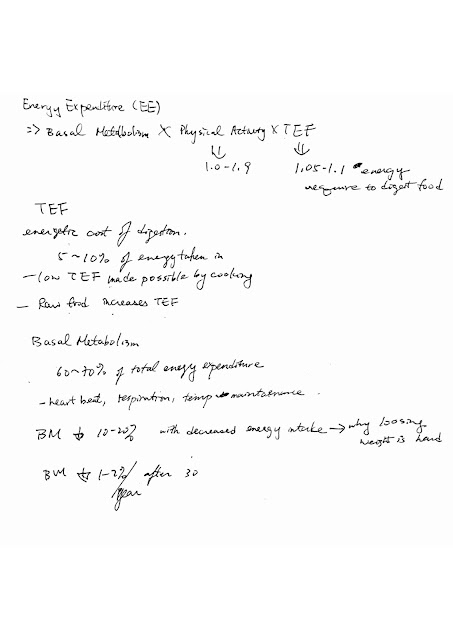 Energy Expenditure (EE)
=> Basal Metabolism X Physical Activity X TEF
⇓ ⇓
1.0-1.9 1.05-1.1 energy
require to digest food
TEF
energetic cost of digestion.
5~10% of energy taken in
- low TEF made possible by cooking
- Raw food increases TEF
Basal Metabolism
60~70% of total energy expenditure
- heart beat, respiration, temp maintainence.
BM ↓ 10-20% with decreased energy intake → why loosing
weight is hard
BM ↓ 1-2%/ after 30
/year